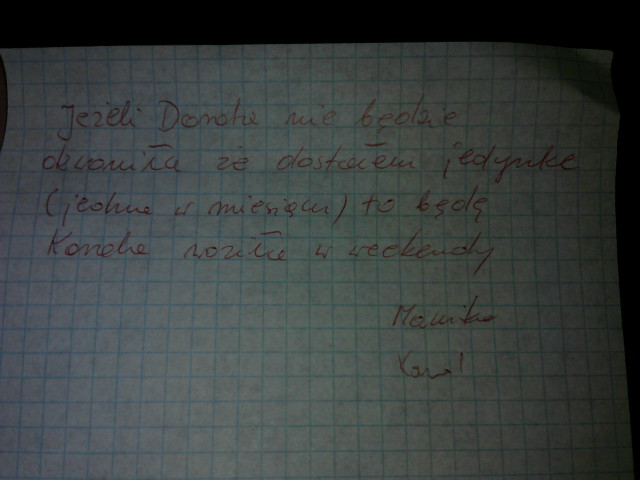 Jeżeli Dorota nie będzie
dzwoniła że dostałem jedynkę
(jedna w miesiącu) to będę
woziła w weekendy
Karol